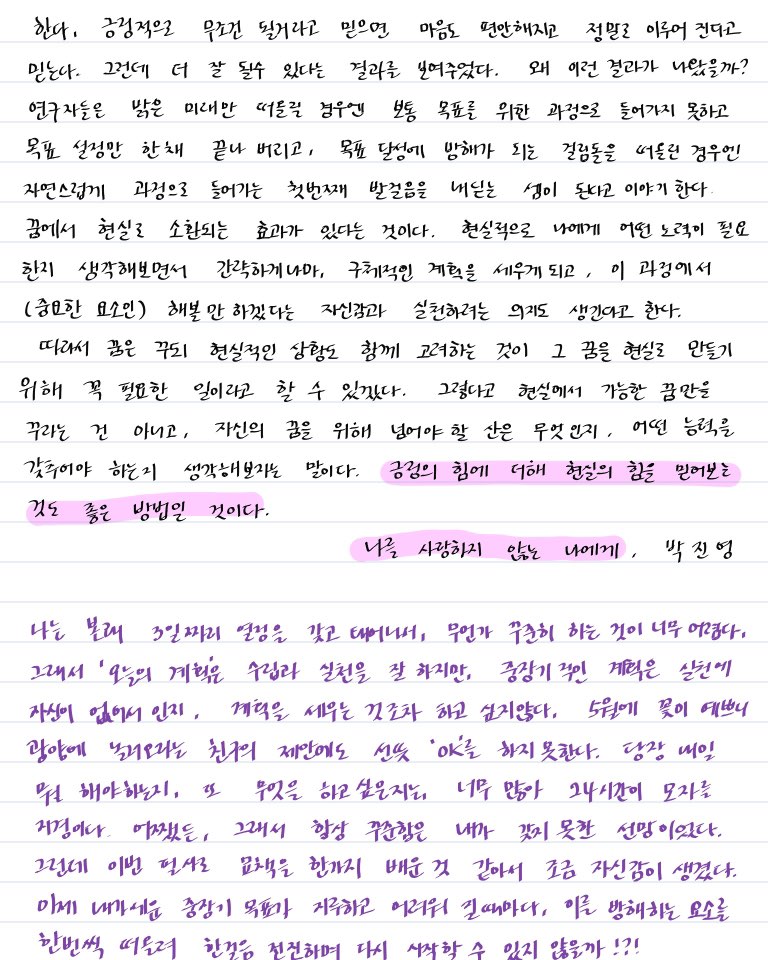 한다. 긍정적으로 무조건 될거라고 믿으면 마음도 편안해지고 정말로 이루어 진다고
믿는다. 그런데 더 잘 될수 있다는 결과를 보여주었다. 왜 이런 결과가 나왔을까?
연구자들은 밝은 미래만 떠올릴 경우엔 보통 목표를 위한 과정으로 들어가지 못하고
목표 설정만 한채 끝나 버리고, 목표 달성에 방해가 되는 걸림돌을 떠올린 경우엔
자연스럽게 과정으로 들어가는 첫번째 발걸음을 내딛는 셈이 된다고 이야기 한다.
꿈에서 현실로 소환되는 효과가 있다는 것이다. 현실적으로 나에게 어떤 노력이 필요
한지 생각해보면서 간략하게나마, 구체적인 계획을 세우게 되고, 이 과정에서
(중요한 요소인) 해볼 만 하겠다는 자신감과 실천하려는 의지도 생긴다고 한다.
따라서 꿈은 꾸되 현실적인 상황도 함께 고려하는 것이 그 꿈을 현실로 만들기
위해 꼭 필요한 일이라고 할 수 있겠다. 그렇다고 현실에서 가능한 꿈만을
꾸라는 건 아니고, 자신의 꿈을 위해 넘어야 할 산은 무엇인지, 어떤 능력을
갖추어야 하는지 생각해보자는 말이다. 긍정의 힘에 더해 현실의 힘을 믿어보는
것도 좋은 방법일 것이다.
나를 사랑하지 않는 나에게, 박진영
나는 본래 3일짜리 열정을 갖고 태어나서, 무언가 꾸준히 하는 것이 너무 어렵다.
그래서 '오늘의 계획'은 수립과 실천을 잘 하지만, 중장기적인 계획은 실천에
자신이 없어서 인지, 계획을 세우는 것조차 하고 싶지않다. 5월에 꽃이 예쁘니
광양에 놀러오라는 친구의 제안에도 선뜻 'OK'를 하지 못한다. 당장 내일
뭐 해야하는지, 또 무엇을 하고 싶은지는, 너무 많아 24시간이 모자를
지경이다. 어쨌든, 그래서 항상 꾸준함은 내가 갖지 못한 선망이었다.
그런데 이번 필사로 묘책을 한가지 배운 것 같아서 조금 자신감이 생겼다.
이제 내가세운 중장기 목표가 지루하고 어려워 질때마다, 이를 방해하는 요소를
한번씩 떠올려 한걸음 전진하며 다시 시작할 수 있지 않을까!?!